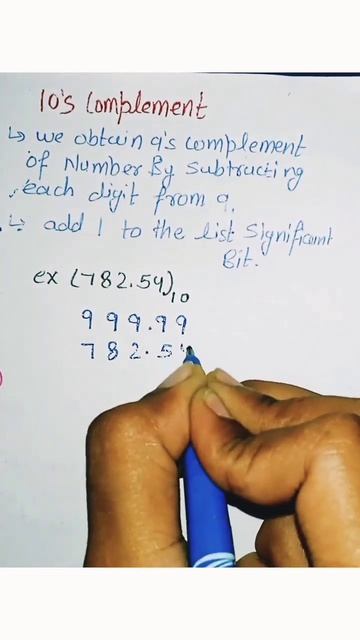 10's Complement
↳ we obtain 9's complement
of Number By Subtracting
each digit from 9.
↳ add 1 to the list Significant
Bit.
ex (782.54)10
999.99
782.54